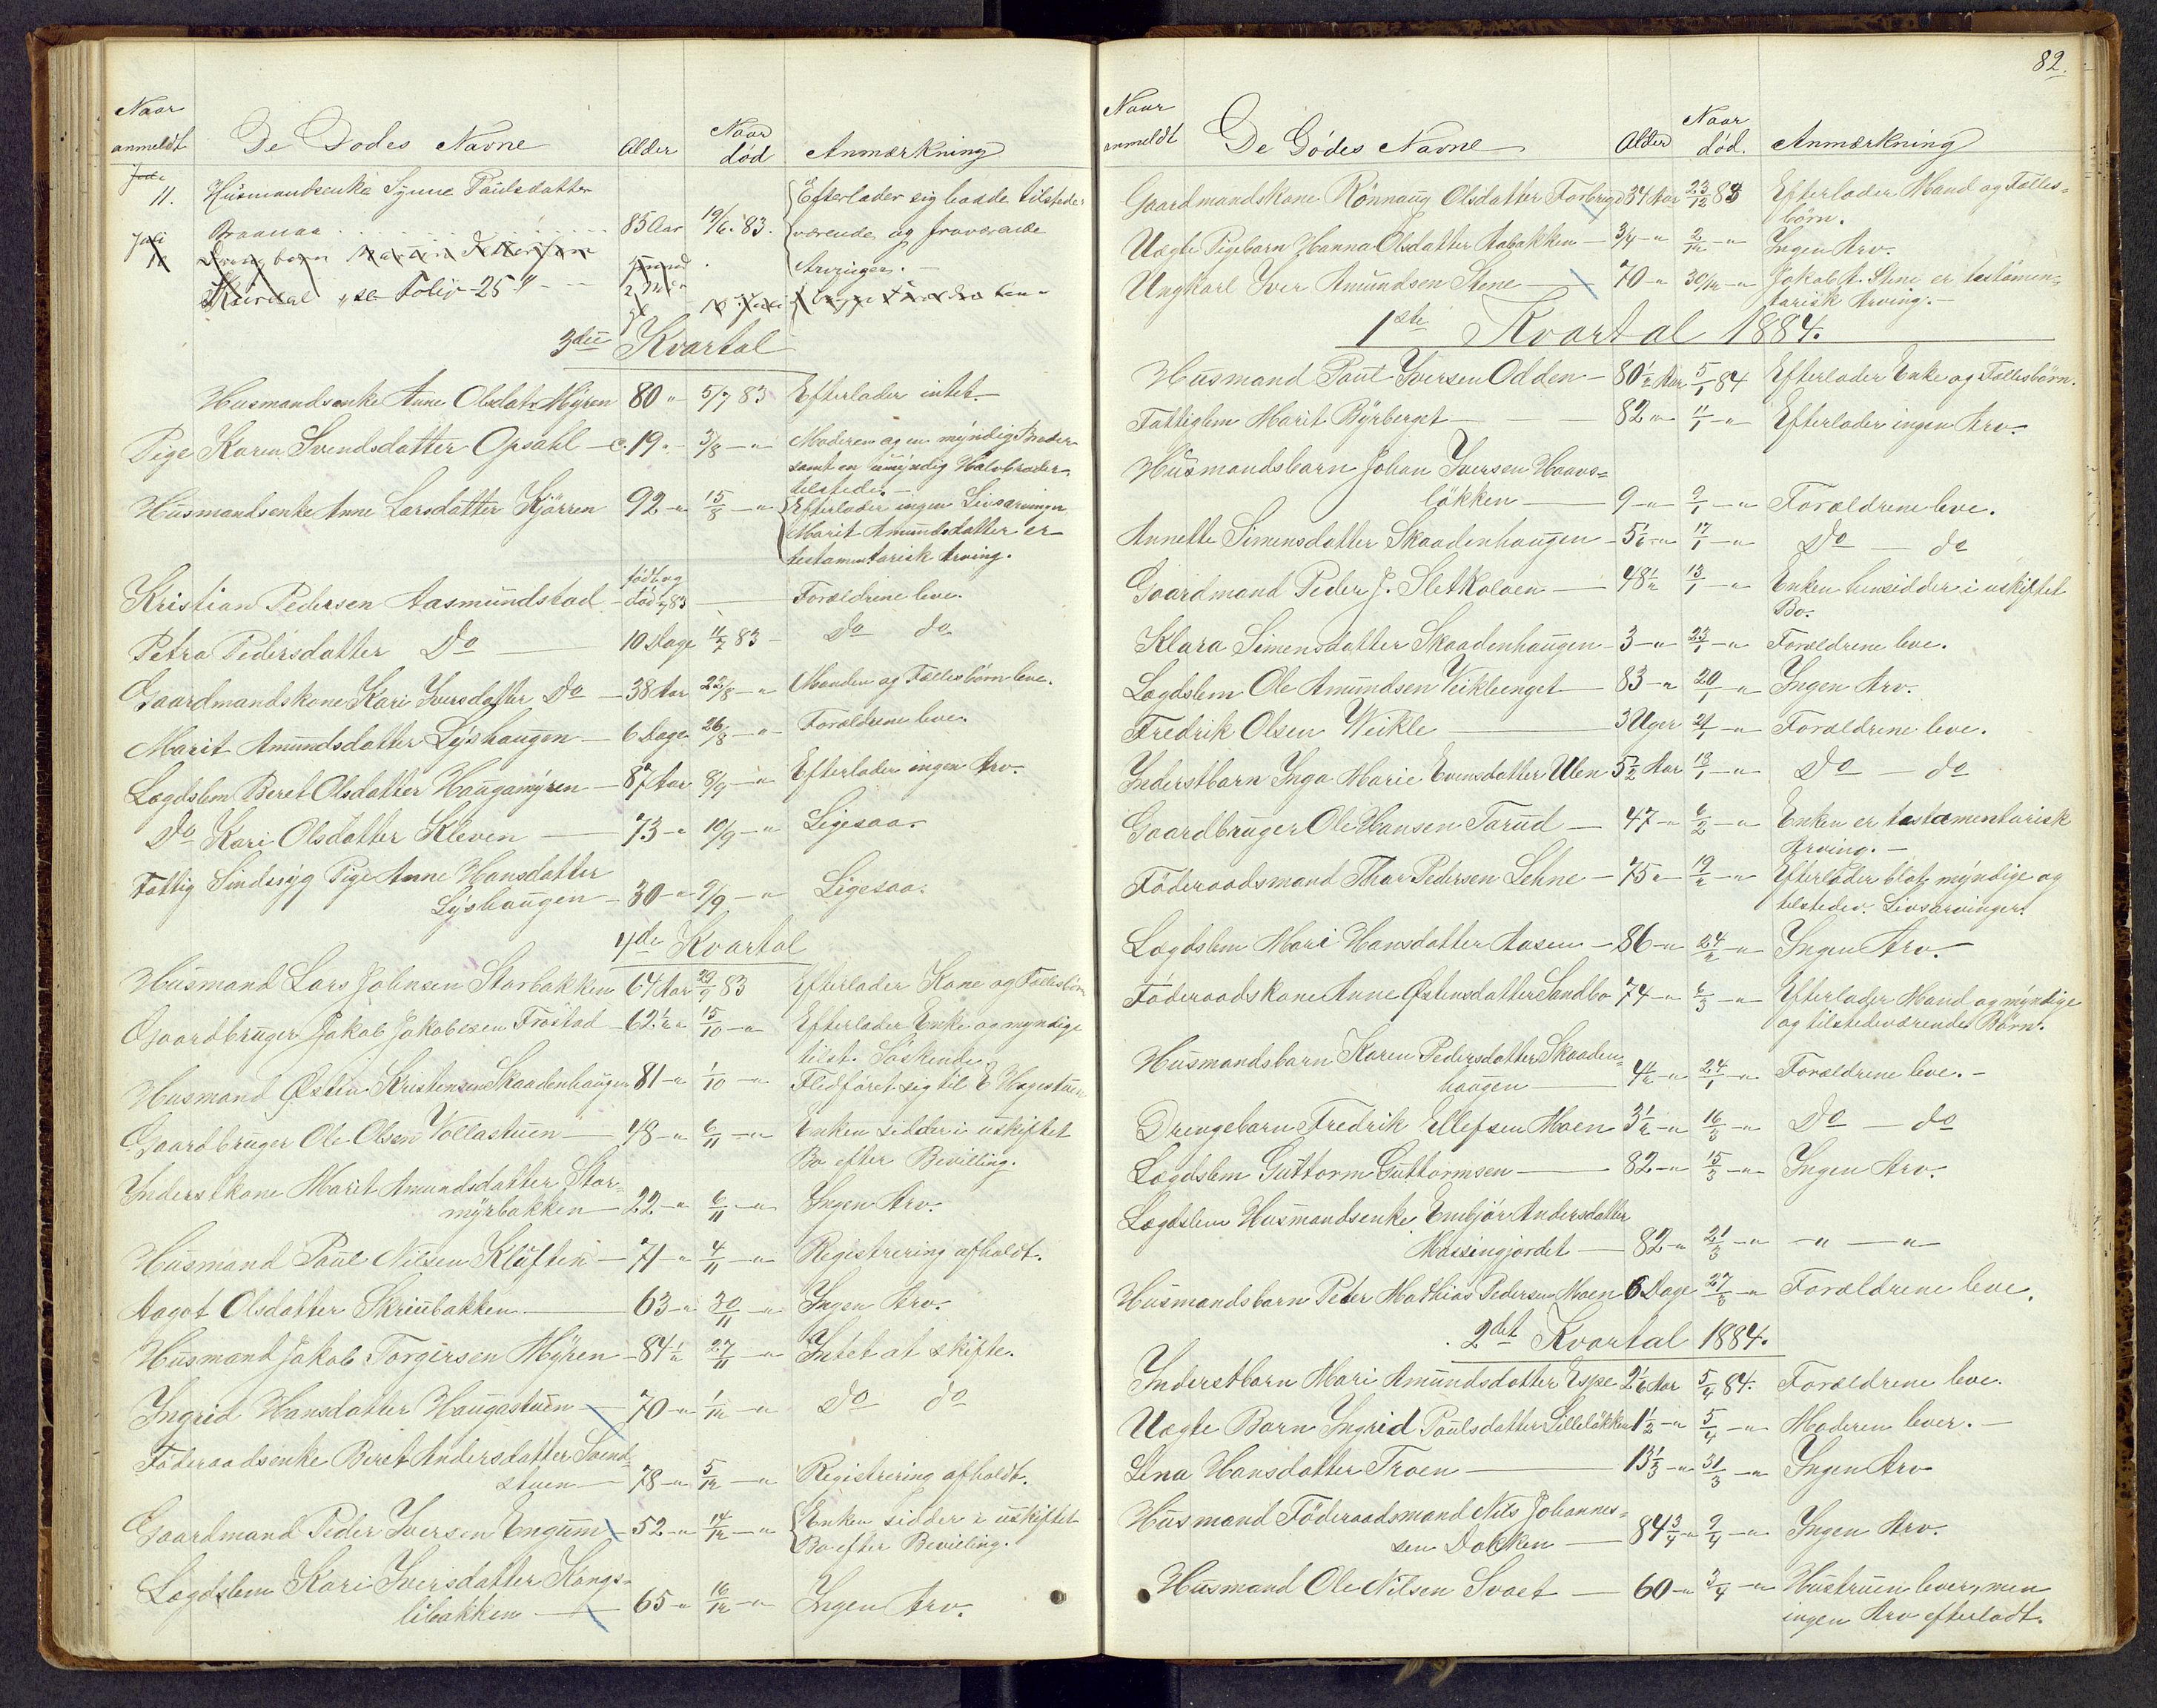 Naar
anmeldt De Dødes Navne Alder Naar død Anmærkning
11. Husmandsenke Synne Paulsdatter
Braanaa 85 Aar 19/6. 83. Efterlader sig baade tilstede-
værende og fraværende
Arvinger. –
Juli
Drengebarn
Folio 25
3die Kvartal
Husmandsenke Anne Olsdatr Myren 80 " 5/7 83 Efterlader intet.
Pige Karen Svendsdatter Opsahl – c. 19 " 3/8 – " Moderen og en myndig Broder
samt en umyndig Halvbroder
tilstede. –
Husmandsenke Anne Larsdatter Kjörren 92 – " 15/8 – " Efterlader ingen Livsarvinger
Marit Amundsdatter er
testamentarisk Arving.
Kristian Pedersen Aasmundstad – født og død 83 – Forældrene leve.
Petra Pedersdatter Do – 10 Dage 11/7 83 – Do do
Gaardmandskone Kari Iversdatter Do – 38 Aar 22/8 – " Manden og Fællesbørn leve.
Marit Amundsdatter Lyshaugen – 6 Dage 26/8 – " Forældrene leve.
Lægdslem Beret Olsdatter Haugamyren – 87 Aar 8/9 – " Efterlader ingen Arv.
Do Kari Olsdatter Kleven – 73 – " 10/9 – " Ligesaa.
Fattig Sindsyg Pige Anne Hansdatter
Lyshaugen – 30 – " 9/9 – " Ligesaa.
4de Kvartal
Husmand Lars Johnsen Storbakken 64 Aar 29/9 83 Efterlader Kone og Fællesbörn
Gaardbruger Jakob Jakobsen Fröstad – 62 1/2 " 15/10 – " Efterlader Enke og myndige
tilst. Söskende.
Husmand Østen Kristensen Skaadenhaugen 81 – " 1/10 – " Fledføret sig til E Hagestuen
Gaardbruger Ole Olsen Vollastuen – 48 – " 6/11 – " Enken sidder i uskiftet
Bo efter Bevilling.
Inderstkone Marit Amundsdatter Stor-
myrbakken – 22 – " 6/11 – " Ingen Arv.
Husmand Paul Nilsen Klöften – 71 – " 4/11 – " Registrering afholdt.
Aagot Olsdatter Skriubakken – 63 – " 30/11 – " Ingen Arv.
Husmand Jakob Torgersen Myren – 84 1/2 27/11 – " Intet at skifte.
Ingrid Hansdatter Haugastuen – 70 – " 1/12 – " Do do
Föderaadsenke Beret Andersdatter Svend-
stuen – 78 – " 5/12 – " Registrering afholdt.
Gaardmand Peder Iversen Engum – 52 – " 14/12 – " Enken sidder i uskiftet
Bo efter Bevilling.
Lægdslem Kari Iversdatter Kongs-
libakken – 65 – " 16/12 – " Ingen Arv.
82.
Naar
anmeldt De Dödes Navne Alder Naar död. Anmærkning
Gaardmandskone Rönnaug Olsdatter Forbrigd 34 Aar 23/12 83 Efterlader Mand og Fælles-
börn.
Uægte Pigebarn Hanna Olsdatter Aabakken – 3/4 – " 2/12 – " Ingen Arv.
Ungkarl Iver Amundsen Stene – 70 – " 30/12 – " Jakob A. Stene er testamen-
tarisk Arving. –
1ste Kvartal 1884.
Husmand Paul Iversen Odden – 80 1/2 Aar 5/1 84 Efterlader Enke og Fællesbörn.
Fattiglem Marit Byrberget – 82 – " 11/1 – " Efterlader ingen Arv.
Husmandsbarn Johan Iversen Haavs-
lökken – 9 – " 9/1 – " Forældrene leve.
Annette Simensdatter Skaadenhaugen – 5 1/2 – " 17/1 – " Do – do
Gaardmand Peder J. Sletkolaen – 48 1/2 13/1 – " Enken hensidder i uskiftet
Bo.
Klara Simensdatter Skaadenhaugen – 3 – " 23/1 – " Forældrene leve.
Lægdslem Ole Amundsen Veikleenget – 83 – " 20/1 – " Ingen Arv.
Fredrik Olsen Weikle – 3 Uger 21/1 – " Forældrene leve.
Inderstbarn Inga Marie Evensdatter Ulen 5 1/2 Aar 13/1 – " Do – do
Gaardbruger Ole Hansen Torud – 47 – " 6/2 – " Enken er testamentarisk
Arving. –
Föderaadsmand Thor Pedersen Lehne – 75 – " 19/2 – " Efterlader blot myndige og
tilstedev. Livsarvinger.
Lægdslem Mari Hansdatter Aasen – 86 – " 24/2 – " Ingen Arv.
Föderaadskone Anne Østensdatter Sandbo 74 – " 6/3 – " Efterlader Mand og myndige
og tilstedeværende Börn.
Husmandsbarn Karen Pedersdatter Skaaden-
haugen – 4 1/2 – " 24/1 – " Forældrene leve. –
Drengebarn Fredrik Ellefsen Moen 3 1/2 – " 16/3 – " Do – do
Lægdslem Guttorm Guttormsen – 82 – " 15/3 – " Ingen Arv.
Lægdslem Husmandsenke Embjör Andersdatter
Massingjordet – 82 – " 21/3 – " – " – " –
Husmandsbarn Peter Mathias Pedersen Moen 6 Dage 27/3 – " Forældrene leve.
2det Kvartal 1884.
Inderstbarn Mari Amundsdatter Espe 2 1/6 Aar 5/4 84. Forældrene leve.
Uægte Barn Ingrid Paulsdatter Lillelökken 1 1/2 – " 5/4 – " Moderen lever. –
Lena Hansdatter Troen – 13 1/3 – " 31/3 – " Ingen Arv
Husmand Föderaadsmand Nils Johannes-
sen Dokken – 84 3/4 – " 9/4 – " Ingen Arv.
Husmand Ole Nilsen Svaet – 60 – " 3/4 – " Hustruen lever, men
ingen Arv efterladt.